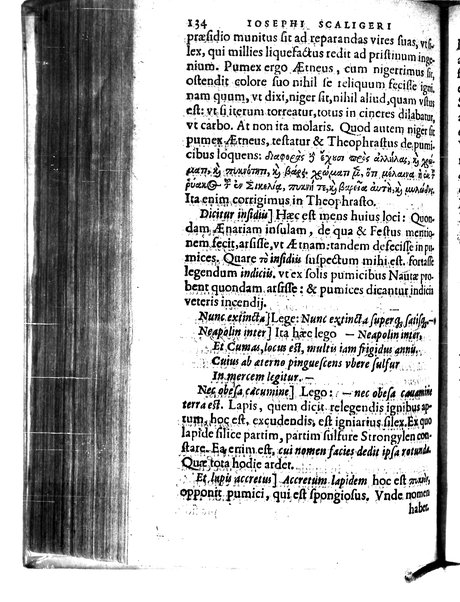 134 IOSEPHI SCALIGERI
præsidio munitus sit ad reparandas vires suas, vt si-
lex, qui millies liquefactus redit ad pristinum inge-
nium. Pumex ergo Ætneus, cum nigerrimus sit,
ostendit colore suo nihil se reliquum fecisse igni,
nam quum, vt dixi, niger sit, nihil aliud, quam vstus
est: vt si iterum torreatur, totus in cineres dilabatur,
vt carbo. At non ita molaris. Quod autem niger sit
pumex Ætneus, testatur & Theophrastus de pumi-
cibus loquens: διαφορὰς ἢ ἔχουσι πρὸς ἀλλήλας, ἢ χρώ-
ματι, ἢ πυκνότητι, ἢ βάρει. χρώματι μὲν, ὅτι μέλαινα
ῥύακος τοῦ ἐν Σικελίᾳ, πυκνή τε, ἢ βαρεῖα αὐτὴ, ἢ μυλώδης.
Ita enim corrigimus in Theophrasto.
Dicitur insidiis] Hæc est mens huius loci: Quon-
dam Ænariam insulam, de qua & Festus mentio-
nem fecit, arsisse, vt Ætnam: tandem defecisse in pu-
mices. Quare τὸ insidiis suspectum mihi est. fortasse
legendum indiciis. vt ex solis pumicibus Nautæ pro-
bent quondam arsisse: & pumices dicantur indicia
veteris incendij.
Nunc extincta] Lege: Nunc extincta super q́, satisq́, —
Neapolin inter] Ita hæc lego — Neapolin inter,
Et Cumas, locus est, multis iam frigidus annis,
Cuius ab æterno pinguescens vbere sulfur
In mercem legitur. —
Nec obesa cacumine] Lego: — nec obesa cacumine
terra est. Lapis, quem dicit relegendis ignibus ap-
tum, hoc est, excudendis, est igniarius silex. Ex quo
lapide silice partim, partim sulfure Strongylen con-
stare. Ea enim est, cui nomen facies dedit ipsa rotunda.
Quæ tota hodie ardet.
Et lapis accretus] Accretum lapidem hoc est
opponit pumici, qui est spongiosus. Vnde nomen
habet